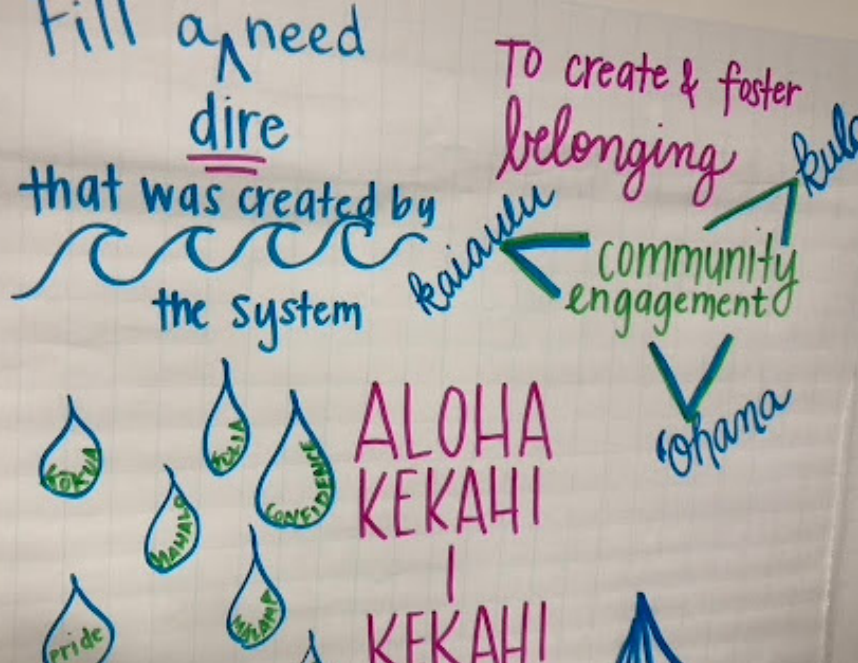 Fill a ^ need
dire
that was created by
the system
To create & foster
belonging
kaiaulu
community
engagement
'ohana
KOKUA
CONFIDENCE
MAHALO
MALAMA
Pride
ALOHA
KEKAHI
I
KEKAHI